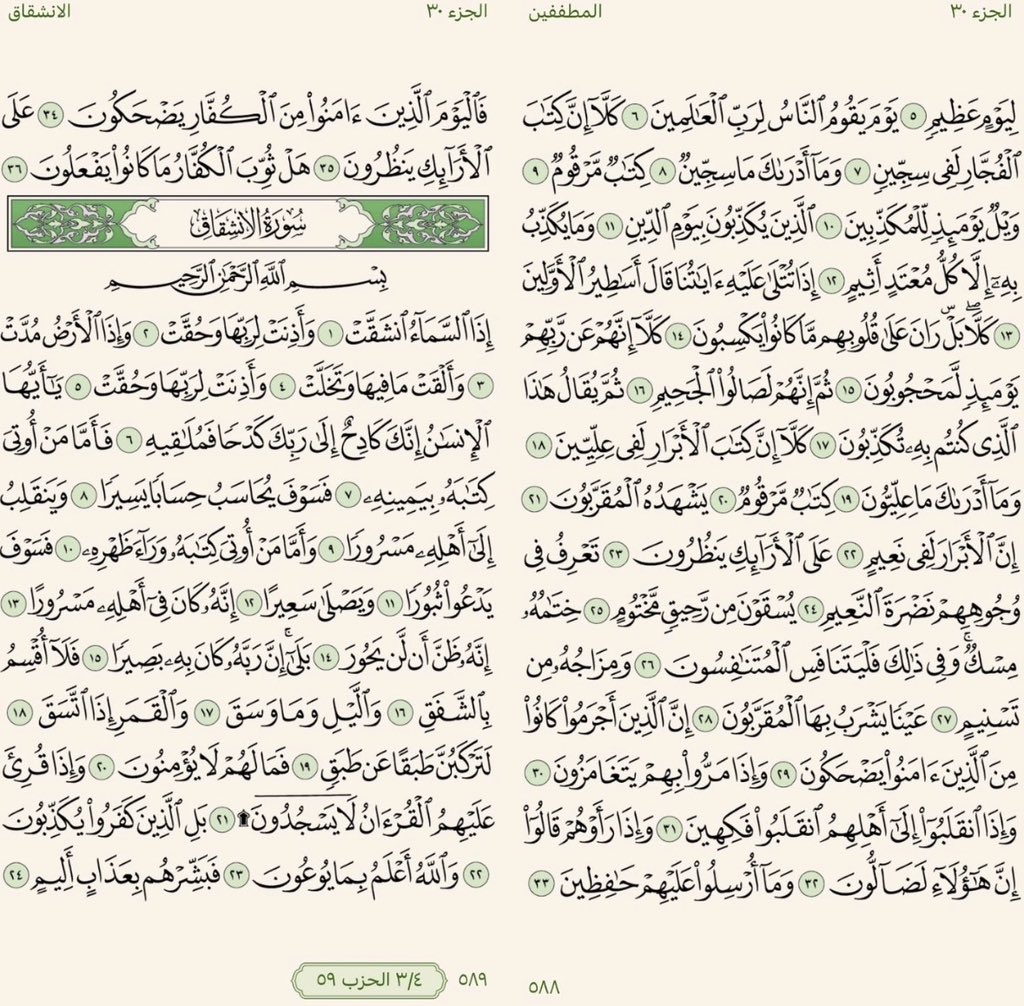 الجزء ٣٠
المطففين
لِيَوْمٍ عَظِيمٍ ٥ يَوْمَ يَقُومُ ٱلنَّاسُ لِرَبِّ ٱلْعَـٰلَمِينَ ٦ كَلَّآ إِنَّ كِتَـٰبَ
ٱلْفُجَّارِ لَفِى سِجِّينٍ ٧ وَمَآ أَدْرَىٰكَ مَا سِجِّينٌ ٨ كِتَـٰبٌ مَّرْقُومٌ ٩
وَيْلٌ يَوْمَئِذٍ لِّلْمُكَذِّبِينَ ١٠ ٱلَّذِينَ يُكَذِّبُونَ بِيَوْمِ ٱلدِّينِ ١١ وَمَا يُكَذِّبُ
بِهِۦٓ إِلَّا كُلُّ مُعْتَدٍ أَثِيمٍ ١٢ إِذَا تُتْلَىٰ عَلَيْهِ ءَايَـٰتُنَا قَالَ أَسَـٰطِيرُ ٱلْأَوَّلِينَ
١٣ كَلَّا ۖ بَلْ ۜ رَانَ عَلَىٰ قُلُوبِهِم مَّا كَانُوا۟ يَكْسِبُونَ ١٤ كَلَّآ إِنَّهُمْ عَن رَّبِّهِمْ
يَوْمَئِذٍ لَّمَحْجُوبُونَ ١٥ ثُمَّ إِنَّهُمْ لَصَالُوا۟ ٱلْجَحِيمِ ١٦ ثُمَّ يُقَالُ هَـٰذَا
ٱلَّذِى كُنتُم بِهِۦ تُكَذِّبُونَ ١٧ كَلَّآ إِنَّ كِتَـٰبَ ٱلْأَبْرَارِ لَفِى عِلِّيِّينَ ١٨
وَمَآ أَدْرَىٰكَ مَا عِلِّيُّونَ ١٩ كِتَـٰبٌ مَّرْقُومٌ ٢٠ يَشْهَدُهُ ٱلْمُقَرَّبُونَ ٢١
إِنَّ ٱلْأَبْرَارَ لَفِى نَعِيمٍ ٢٢ عَلَى ٱلْأَرَآئِكِ يَنظُرُونَ ٢٣ تَعْرِفُ فِى
وُجُوهِهِمْ نَضْرَةَ ٱلنَّعِيمِ ٢٤ يُسْقَوْنَ مِن رَّحِيقٍ مَّخْتُومٍ ٢٥ خِتَـٰمُهُۥ
مِسْكٌ ۚ وَفِى ذَٰلِكَ فَلْيَتَنَافَسِ ٱلْمُتَنَـٰفِسُونَ ٢٦ وَمِزَاجُهُۥ مِن
تَسْنِيمٍ ٢٧ عَيْنًا يَشْرَبُ بِهَا ٱلْمُقَرَّبُونَ ٢٨ إِنَّ ٱلَّذِينَ أَجْرَمُوا۟ كَانُوا۟
مِنَ ٱلَّذِينَ ءَامَنُوا۟ يَضْحَكُونَ ٢٩ وَإِذَا مَرُّوا۟ بِهِمْ يَتَغَامَزُونَ ٣٠
وَإِذَا ٱنقَلَبُوٓا۟ إِلَىٰٓ أَهْلِهِمُ ٱنقَلَبُوا۟ فَكِهِينَ ٣١ وَإِذَا رَأَوْهُمْ قَالُوٓا۟
إِنَّ هَـٰٓؤُلَآءِ لَضَآلُّونَ ٣٢ وَمَآ أُرْسِلُوا۟ عَلَيْهِمْ حَـٰفِظِينَ ٣٣
٥٨٨
الجزء ٣٠
الانشقاق
فَٱلْيَوْمَ ٱلَّذِينَ ءَامَنُوا۟ مِنَ ٱلْكُفَّارِ يَضْحَكُونَ ٣٤ عَلَى
ٱلْأَرَآئِكِ يَنظُرُونَ ٣٥ هَلْ ثُوِّبَ ٱلْكُفَّارُ مَا كَانُوا۟ يَفْعَلُونَ ٣٦
سُورَةُ الانشقاق
بِسْمِ ٱللَّهِ ٱلرَّحْمَـٰنِ ٱلرَّحِيمِ
إِذَا ٱلسَّمَآءُ ٱنشَقَّتْ ١ وَأَذِنَتْ لِرَبِّهَا وَحُقَّتْ ٢ وَإِذَا ٱلْأَرْضُ مُدَّتْ
٣ وَأَلْقَتْ مَا فِيهَا وَتَخَلَّتْ ٤ وَأَذِنَتْ لِرَبِّهَا وَحُقَّتْ ٥ يَـٰٓأَيُّهَا
ٱلْإِنسَـٰنُ إِنَّكَ كَادِحٌ إِلَىٰ رَبِّكَ كَدْحًا فَمُلَـٰقِيهِ ٦ فَأَمَّا مَنْ أُوتِىَ
كِتَـٰبَهُۥ بِيَمِينِهِۦ ٧ فَسَوْفَ يُحَاسَبُ حِسَابًا يَسِيرًا ٨ وَيَنقَلِبُ
إِلَىٰٓ أَهْلِهِۦ مَسْرُورًا ٩ وَأَمَّا مَنْ أُوتِىَ كِتَـٰبَهُۥ وَرَآءَ ظَهْرِهِۦ ١٠ فَسَوْفَ
يَدْعُوا۟ ثُبُورًا ١١ وَيَصْلَىٰ سَعِيرًا ١٢ إِنَّهُۥ كَانَ فِىٓ أَهْلِهِۦ مَسْرُورًا ١٣
إِنَّهُۥ ظَنَّ أَن لَّن يَحُورَ ١٤ بَلَىٰٓ ۚ إِنَّ رَبَّهُۥ كَانَ بِهِۦ بَصِيرًا ١٥ فَلَآ أُقْسِمُ
بِٱلشَّفَقِ ١٦ وَٱلَّيْلِ وَمَا وَسَقَ ١٧ وَٱلْقَمَرِ إِذَا ٱتَّسَقَ ١٨
لَتَرْكَبُنَّ طَبَقًا عَن طَبَقٍ ١٩ فَمَا لَهُمْ لَا يُؤْمِنُونَ ٢٠ وَإِذَا قُرِئَ
عَلَيْهِمُ ٱلْقُرْءَانُ لَا يَسْجُدُونَ ۩ ٢١ بَلِ ٱلَّذِينَ كَفَرُوا۟ يُكَذِّبُونَ
٢٢ وَٱللَّهُ أَعْلَمُ بِمَا يُوعُونَ ٢٣ فَبَشِّرْهُم بِعَذَابٍ أَلِيمٍ ٢٤
٥٨٩
٣/٤ الحزب ٥٩